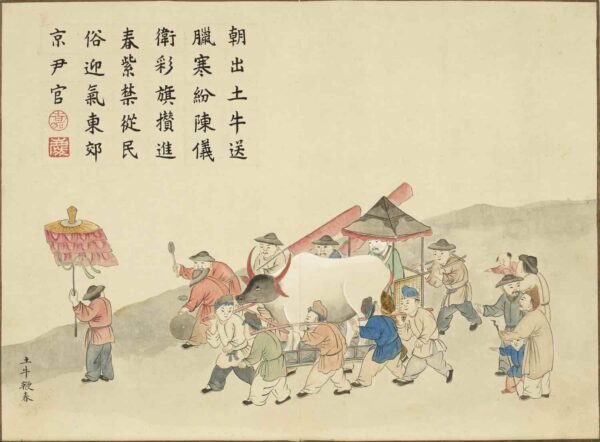 朝出土牛送
臘寒紛陳儀
衛彩旗攢進
春紫禁從民
俗迎氣東郊
京尹官
土牛鞭春